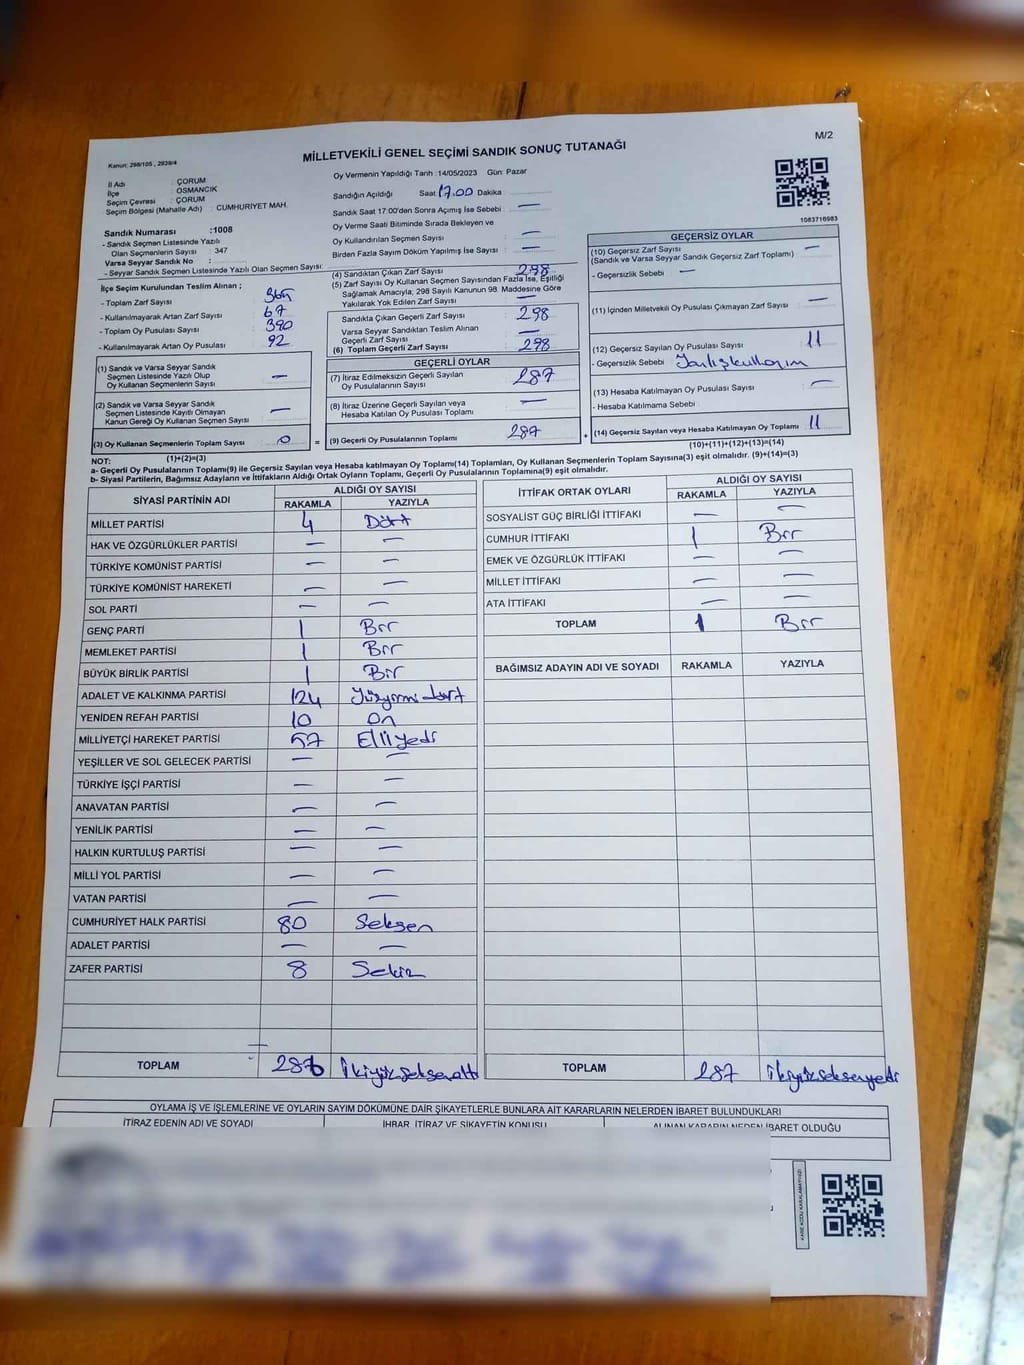 M/2
Kanun: 298/105 , 2839/4
MİLLETVEKİLİ GENEL SEÇİMİ SANDIK SONUÇ TUTANAĞI
İl Adı : ÇORUM
İlçe : OSMANCIK
Seçim Çevresi : ÇORUM
Seçim Bölgesi (Mahalle Adı) : CUMHURİYET MAH.
Sandık Numarası :1008
- Sandık Seçmen Listesinde Yazılı
Olan Seçmenlerin Sayısı : 347
Varsa Seyyar Sandık No :
- Seyyar Sandık Seçmen Listesinde Yazılı Olan Seçmen Sayısı:
İlçe Seçim Kurulundan Teslim Alınan ;
- Toplam Zarf Sayısı : 365
- Kullanılmayarak Artan Zarf Sayısı : 67
- Toplam Oy Pusulası Sayısı : 390
- Kullanılmayarak Artan Oy Pusulası : 92
(1) Sandık ve Varsa Seyyar Sandık
Seçmen Listesinde Yazılı Olup
Oy Kullanan Seçmenlerin Sayısı : —
(2) Sandık ve Varsa Seyyar Sandık
Seçmen Listesinde Kayıtlı Olmayan
Kanun Gereği Oy Kullanan Seçmen Sayısı : —
(3) Oy Kullanan Seçmenlerin Toplam Sayısı : 0 =
(1)+(2)=(3)
Oy Vermenin Yapıldığı Tarih :14/05/2023 Gün: Pazar
Sandığın Açıldığı Saat 17.00 Dakika :
Sandık Saat 17:00'den Sonra Açımış İse Sebebi : —
Oy Verme Saati Bitiminde Sırada Bekleyen ve
Oy Kullandırılan Seçmen Sayısı : —
Birden Fazla Sayım Döküm Yapılmış İse Sayısı : —
(4) Sandıktan Çıkan Zarf Sayısı : 298
(5) Zarf Sayısı Oy Kullanan Seçmen Sayısından Fazla İse, Eşitliği
Sağlamak Amacıyla, 298 Sayılı Kanunun 98. Maddesine Göre
Yakılarak Yok Edilen Zarf Sayısı : —
Sandıkta Çıkan Geçerli Zarf Sayısı : 298
Varsa Seyyar Sandıktan Teslim Alınan
Geçerli Zarf Sayısı : —
(6) Toplam Geçerli Zarf Sayısı : 298
GEÇERLİ OYLAR
(7) İtiraz Edilmeksizin Geçerli Sayılan
Oy Pusulalarının Sayısı : 287
(8) İtiraz Üzerine Geçerli Sayılan veya
Hesaba Katılan Oy Pusulası Toplamı : —
(9) Geçerli Oy Pusulalarının Toplamı : 287 +
1083716983
GEÇERSİZ OYLAR
(10) Geçersiz Zarf Sayısı : —
(Sandık ve Varsa Seyyar Sandık Geçersiz Zarf Toplamı)
- Geçersizlik Sebebi : —
(11) İçinden Milletvekili Oy Pusulası Çıkmayan Zarf Sayısı : —
(12) Geçersiz Sayılan Oy Pusulası Sayısı : 11
- Geçersizlik Sebebi : Yanlış kullanım
(13) Hesaba Katılmayan Oy Pusulası Sayısı : —
- Hesaba Katılmama Sebebi :
(14) Geçersiz Sayılan veya Hesaba Katılmayan Oy Toplamı : 11
(10)+(11)+(12)+(13)=(14)
NOT:
a- Geçerli Oy Pusulalarının Toplamı(9) ile Geçersiz Sayılan veya Hesaba katılmayan Oy Toplamı(14) Toplamları, Oy Kullanan Seçmenlerin Toplam Sayısına(3) eşit olmalıdır. (9)+(14)=(3)
b- Siyasi Partilerin, Bağımsız Adayların ve İttifakların Aldığı Ortak Oyların Toplamı, Geçerli Oy Pusulalarının Toplamına(9) eşit olmalıdır.
SİYASİ PARTİNİN ADI ALDIĞI OY SAYISI
RAKAMLA YAZIYLA
MİLLET PARTİSİ 4 Dört
HAK VE ÖZGÜRLÜKLER PARTİSİ — —
TÜRKİYE KOMÜNİST PARTİSİ — —
TÜRKİYE KOMÜNİST HAREKETİ — —
SOL PARTİ — —
GENÇ PARTİ 1 Bir
MEMLEKET PARTİSİ 1 Bir
BÜYÜK BİRLİK PARTİSİ 1 Bir
ADALET VE KALKINMA PARTİSİ 124 Yüzyirmi dört
YENİDEN REFAH PARTİSİ 10 On
MİLLİYETÇİ HAREKET PARTİSİ 57 Elliyedi
YEŞİLLER VE SOL GELECEK PARTİSİ — —
TÜRKİYE İŞÇİ PARTİSİ — —
ANAVATAN PARTİSİ — —
YENİLİK PARTİSİ — —
HALKIN KURTULUŞ PARTİSİ — —
MİLLİ YOL PARTİSİ — —
VATAN PARTİSİ — —
CUMHURİYET HALK PARTİSİ 80 Seksen
ADALET PARTİSİ — —
ZAFER PARTİSİ 8 Sekiz
TOPLAM 286 ikiyüzseksenaltı
İTTİFAK ORTAK OYLARI ALDIĞI OY SAYISI
RAKAMLA YAZIYLA
SOSYALİST GÜÇ BİRLİĞİ İTTİFAKI — —
CUMHUR İTTİFAKI 1 Bir
EMEK VE ÖZGÜRLÜK İTTİFAKI — —
MİLLET İTTİFAKI — —
ATA İTTİFAKI — —
TOPLAM 1 Bir
BAĞIMSIZ ADAYIN ADI VE SOYADI RAKAMLA YAZIYLA
TOPLAM 287 ikiyüzseksenyedi
OYLAMA İŞ VE İŞLEMLERİNE VE OYLARIN SAYIM DÖKÜMÜNE DAİR ŞİKAYETLERLE BUNLARA AİT KARARLARIN NELERDEN İBARET BULUNDUKLARI
İTİRAZ EDENİN ADI VE SOYADI İHBAR, İTİRAZ VE ŞİKAYETİN KONUSU ALINAN KARARIN NEDEN İBARET OLDUĞU